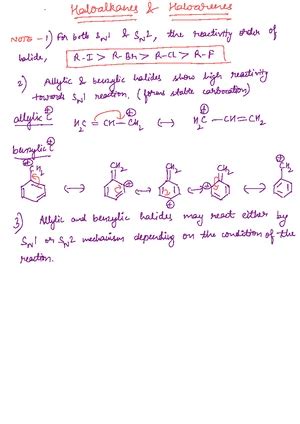 Haloalkanes & Haloarenes
NOTE - 1) For both SN1 & SN2, the reactivity order of
halide, R-I > R-Br > R-Cl > R-F
2) Allylic & benzylic halides show high reactivity
towards SN1 reaction. (forms stable carbocation)
allylic C⊕
H2C = CH - CH2⊕ ↔ H2C⊕ - CH = CH2
benzylic C⊕
⊕CH2 ↔ CH2 ⊕ ↔ CH2 ⊕ ↔ CH2 ⊕ ↔ ⊕CH2
3) Allylic and benzylic halides may react either by
SN1 or SN2 mechanism depending on the condition of the
reacton.